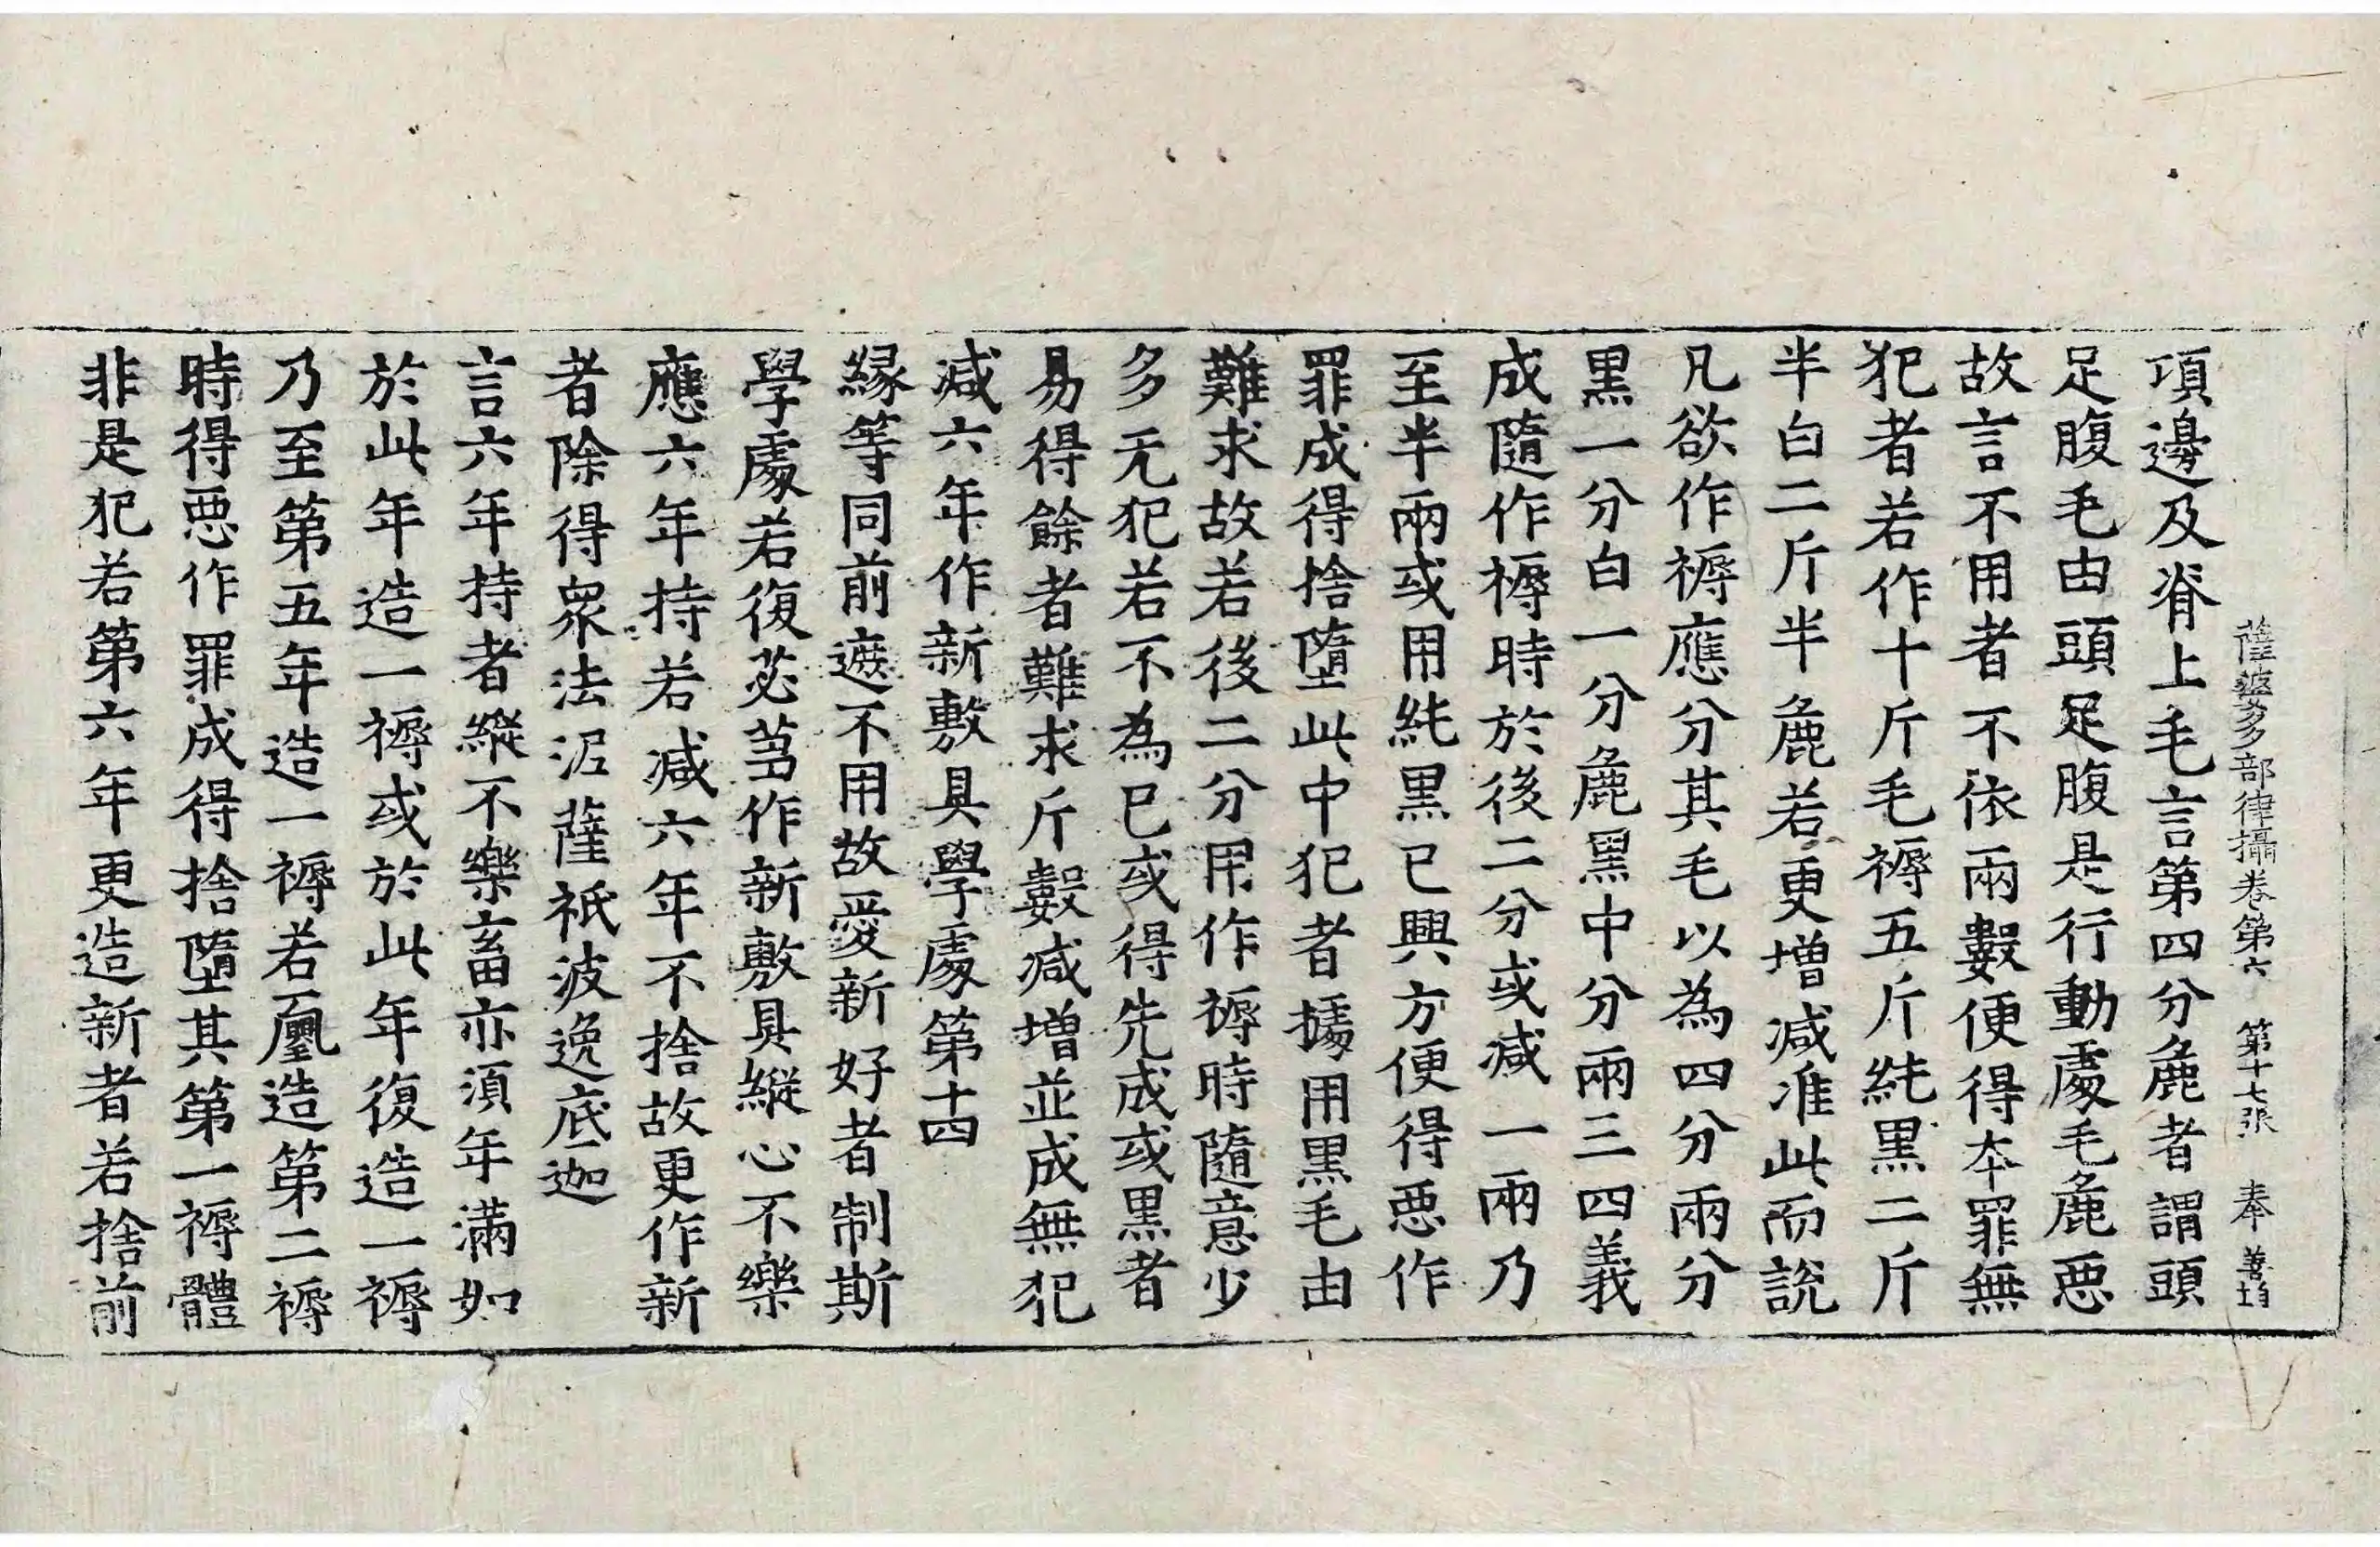 薩婆多部律攝卷第六　第十七張　奉
項邊及脊上毛言第四分麁者謂頭
足腹毛由頭足腹是行動處毛麁恶
故言不用者不依兩數便得本罪無
犯者若作十斤毛褥五斤純黑二斤
半白二斤半麁若更增減准此而説
凡欲作褥應分其毛以為四分兩分
黑一分白一分麁黑中分兩三四義
成隨作褥時於後二分或減一兩乃
至半兩或用純黑已興方便得恶作
罪成得捨墮此中犯者據用黑毛由
難求故若後二分用作褥時隨意少
多无犯若不為已或得先成或黑者
易得餘者難求斤數減增並成無犯
減六年作新敷具學處第十四
緣等同前遮不用故愛新好者制斯
學處若復苾芻作新敷具縱心不樂
應六年持若減六年不捨故更作新
者除得衆法泥薩祇波逸底迦
言六年持者縱不樂畜亦須年滿如
於此年造一褥或於此年復造一褥
乃至第五年造一褥若創造第二褥
時得恶作罪成得捨墮其第一褥體
非是犯若第六年更造新者若捨前